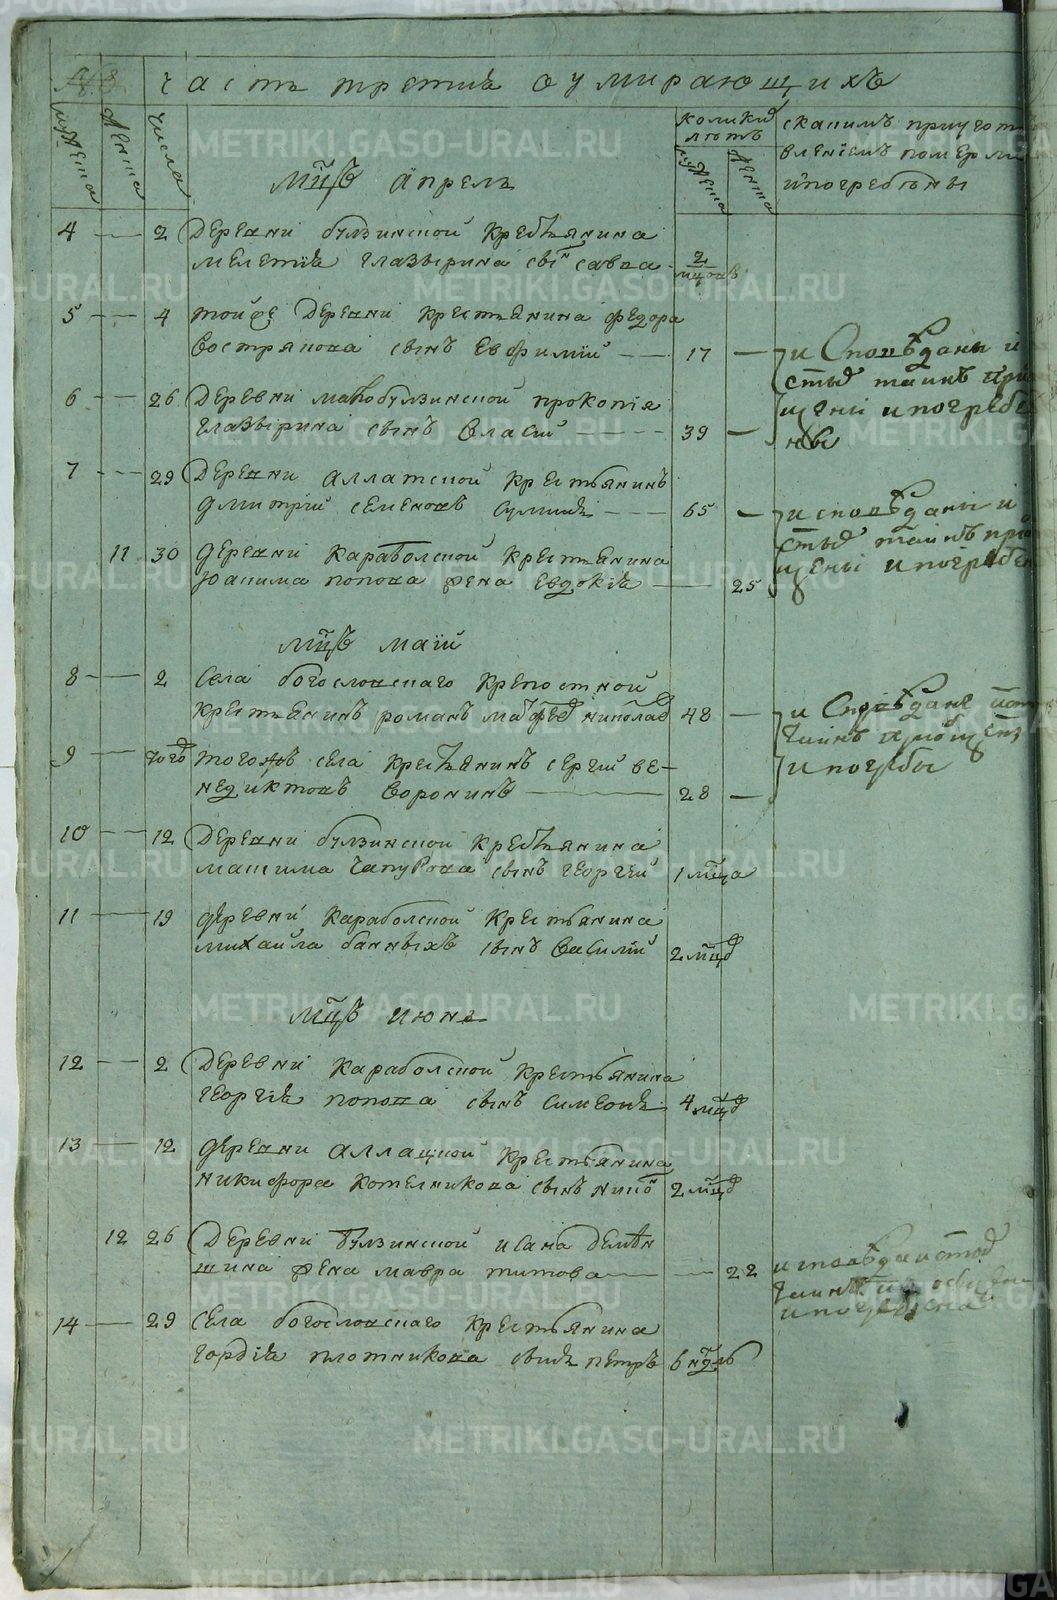 часть третия о умирающихъ
мужеска
женска
числа
колики
лѣтъ
мужеска
женска
с какимъ приугото
влениемъ померли
и погребены
Мцъ Апрель
4 2 Деревни булзинской крестьянина
Мелетия Глазырина сынъ Савва 2 мцовъ
5 4 той же деревни крестьянина Федора
Вострякова сынъ Евфимий 17
и споведаны и
стых таинъ при
щены и погребе
ны
6 26 Деревни малобулзинской Прокопия
Глазырина сынъ Власий 39
7 29 Деревни Аллатской крестьянинъ
Дмитрий Семеновъ 65
и споведаны и
стых таинъ при
щены и погребен
11 30 Деревни Караболской крестьянина
Иоакима Попова жена Евдокия 25
Мцъ Маий
8 2 Села Богословскаго крепостной
крестьянинъ Романъ Николаев 48
9 того тогожъ села крестьянинъ Сергий Ве-
недиктовъ Воронинъ 28
и погребы
10 12 Деревни булзинской крестьянина
Максима Чапурова сынъ Георгий 1 мца
11 19 Деревни Караболской крестьянина
Михаила Банныхъ сынъ Василий 2 мцов
Мцъ Июнь
12 2 Деревни Караболской крестьянина
Георгия Попова сынъ Симеонъ 4 мцов
13 12 Деревни Аллацкой крестьянина
Никифора Котелникова сынъ 2 мцов
12 26 Деревни Булзинской Исака
жена Мавра Титова 22
14 29 Села Богословскаго крестьянина
Гордия Плотникова сынъ Петръ 6 недль
METRIKI.GASO-URAL.RU